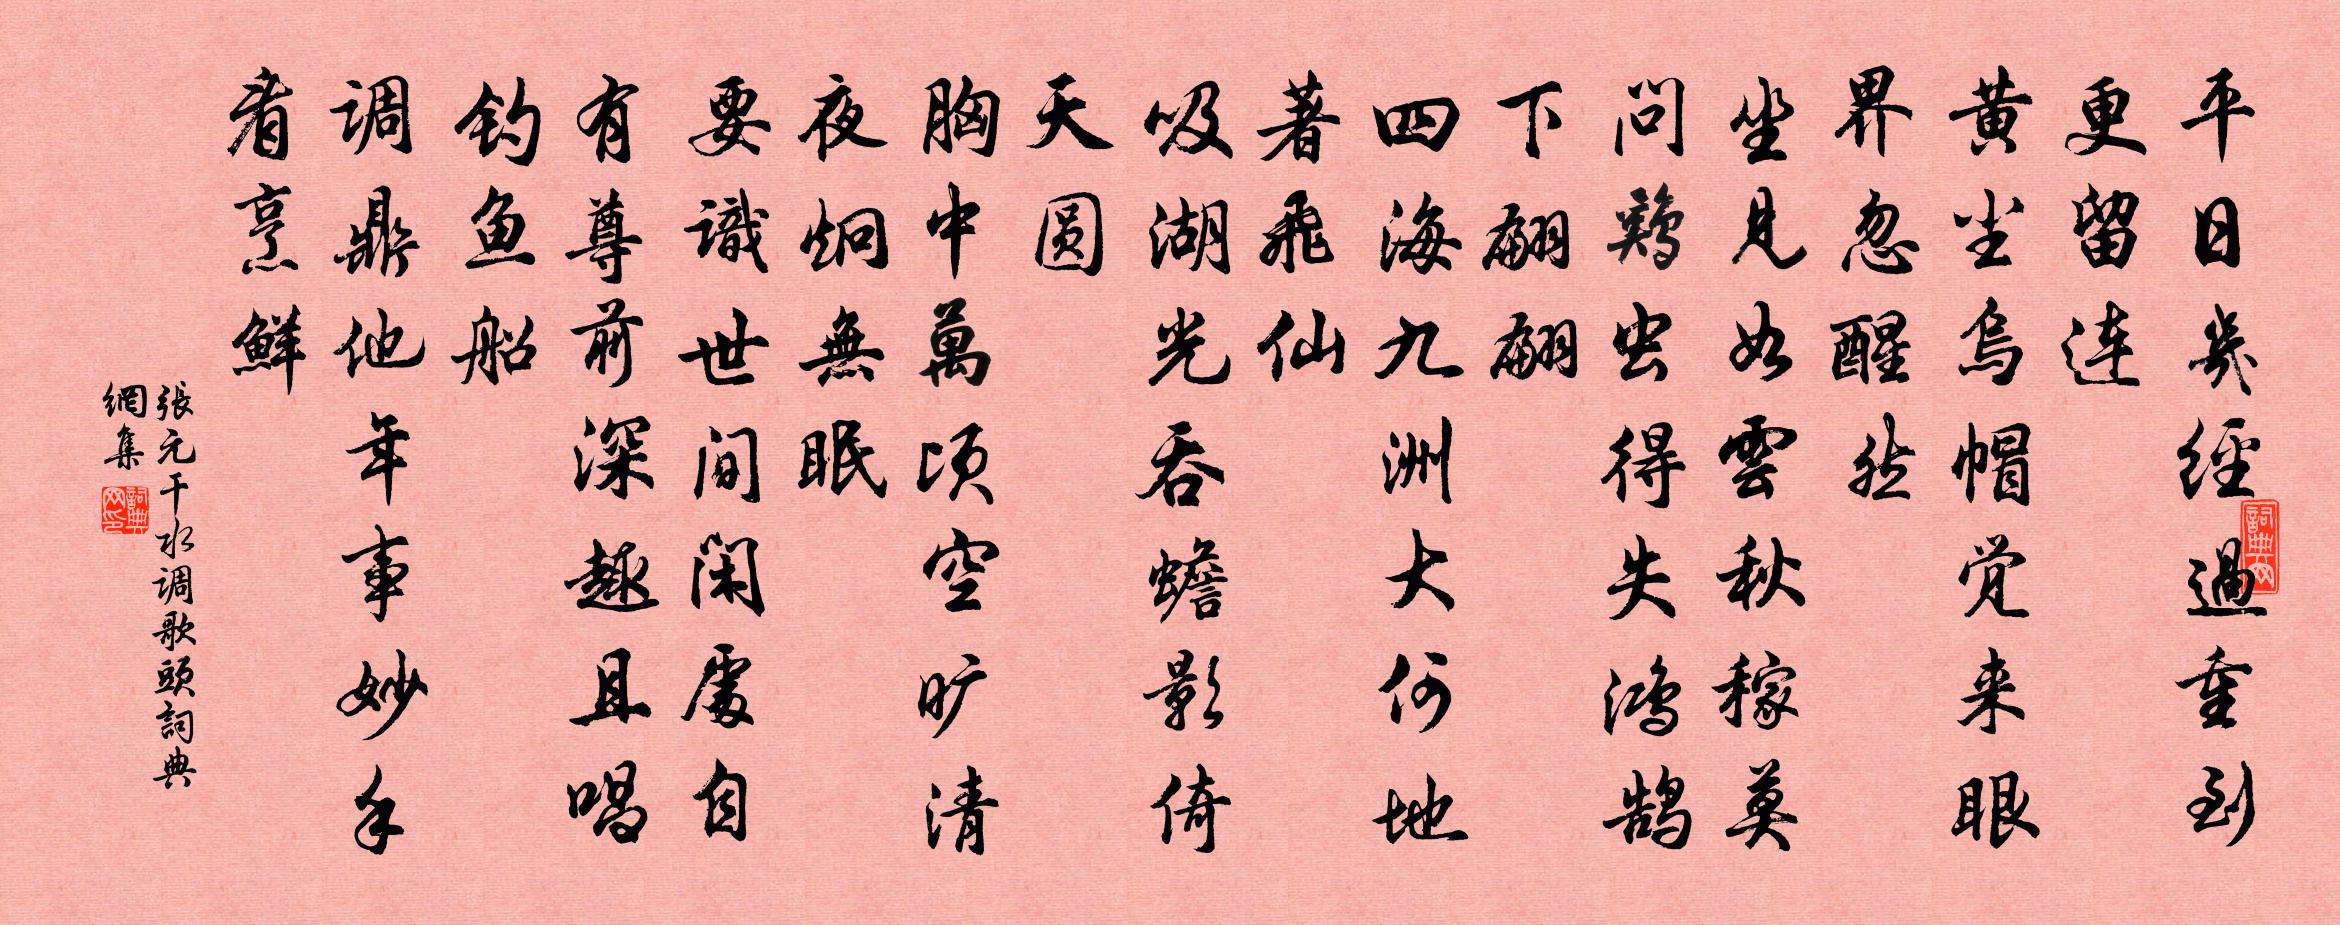 平日幾經過重到
更留连
黄尘烏帽觉来眼
界忽醒然
坐見如雲秋稼莫
问鷄虫得失鸿鹄
下翩翩
四海九洲大何地
著飛仙
吸湖光吞蟾影倚
天圆
胸中萬顷空旷清
夜炯無眠
要識世间闲處自
有尊前深趣且唱
钓鱼船
调鼎他年事妙手
看烹鮮
張元干水调歌頭詞典
網集
詞典网
詞典网印